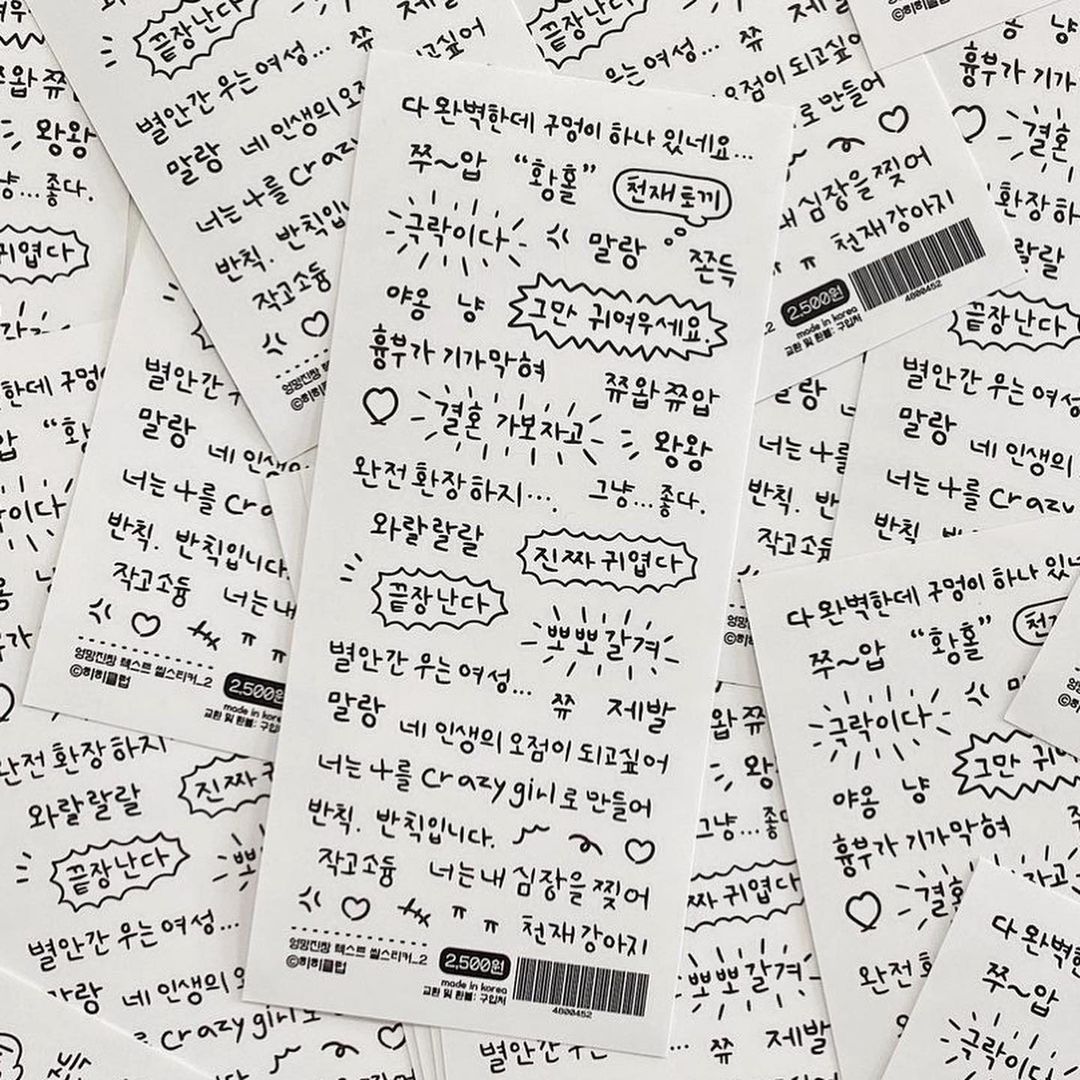 다 완벽한데 구멍이 하나 있네요...
쭈~압 “황홀” 천재토끼
극락이다 말랑 쫀득
야옹 냥 그만 귀여우세요.
흉부가 기가막혀 쮸왑쮸압
결혼 가보자고 왕왕
완전 환장하지... 그냥...좋다.
와랄랄랄 진짜 귀엽다
끝장난다 뽀뽀갈겨
별안간 우는 여성... 쮸 제발
말랑 네 인생의 오점이 되고싶어
너는 나를 crazy girl로 만들어
반칙. 반칙입니다.
작고소듐 너는 내 심장을 찢어
ㅠ ㅠ 천재강아지
엉망진창 텍스트 씰스티커_2 2,500원
©히히클럽 made in korea
교환 및 환불: 구입처
4800452